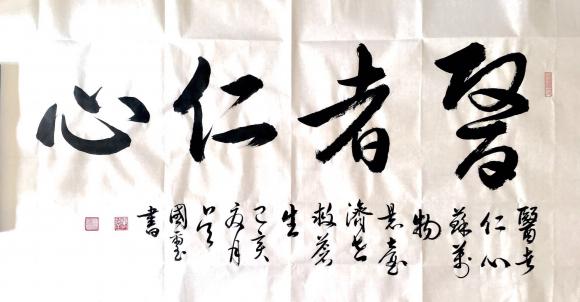 醫者仁心
醫者
仁心
蘇萬
物
懸壺
濟世
救蒼
生
己亥
月
國重
書